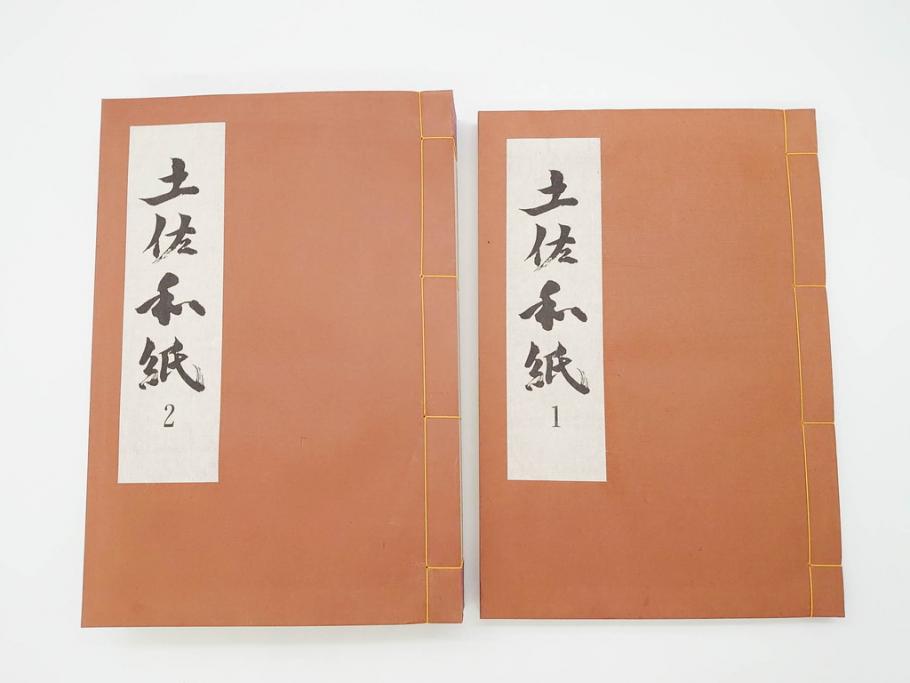 土佐和紙
2
土佐和紙
1